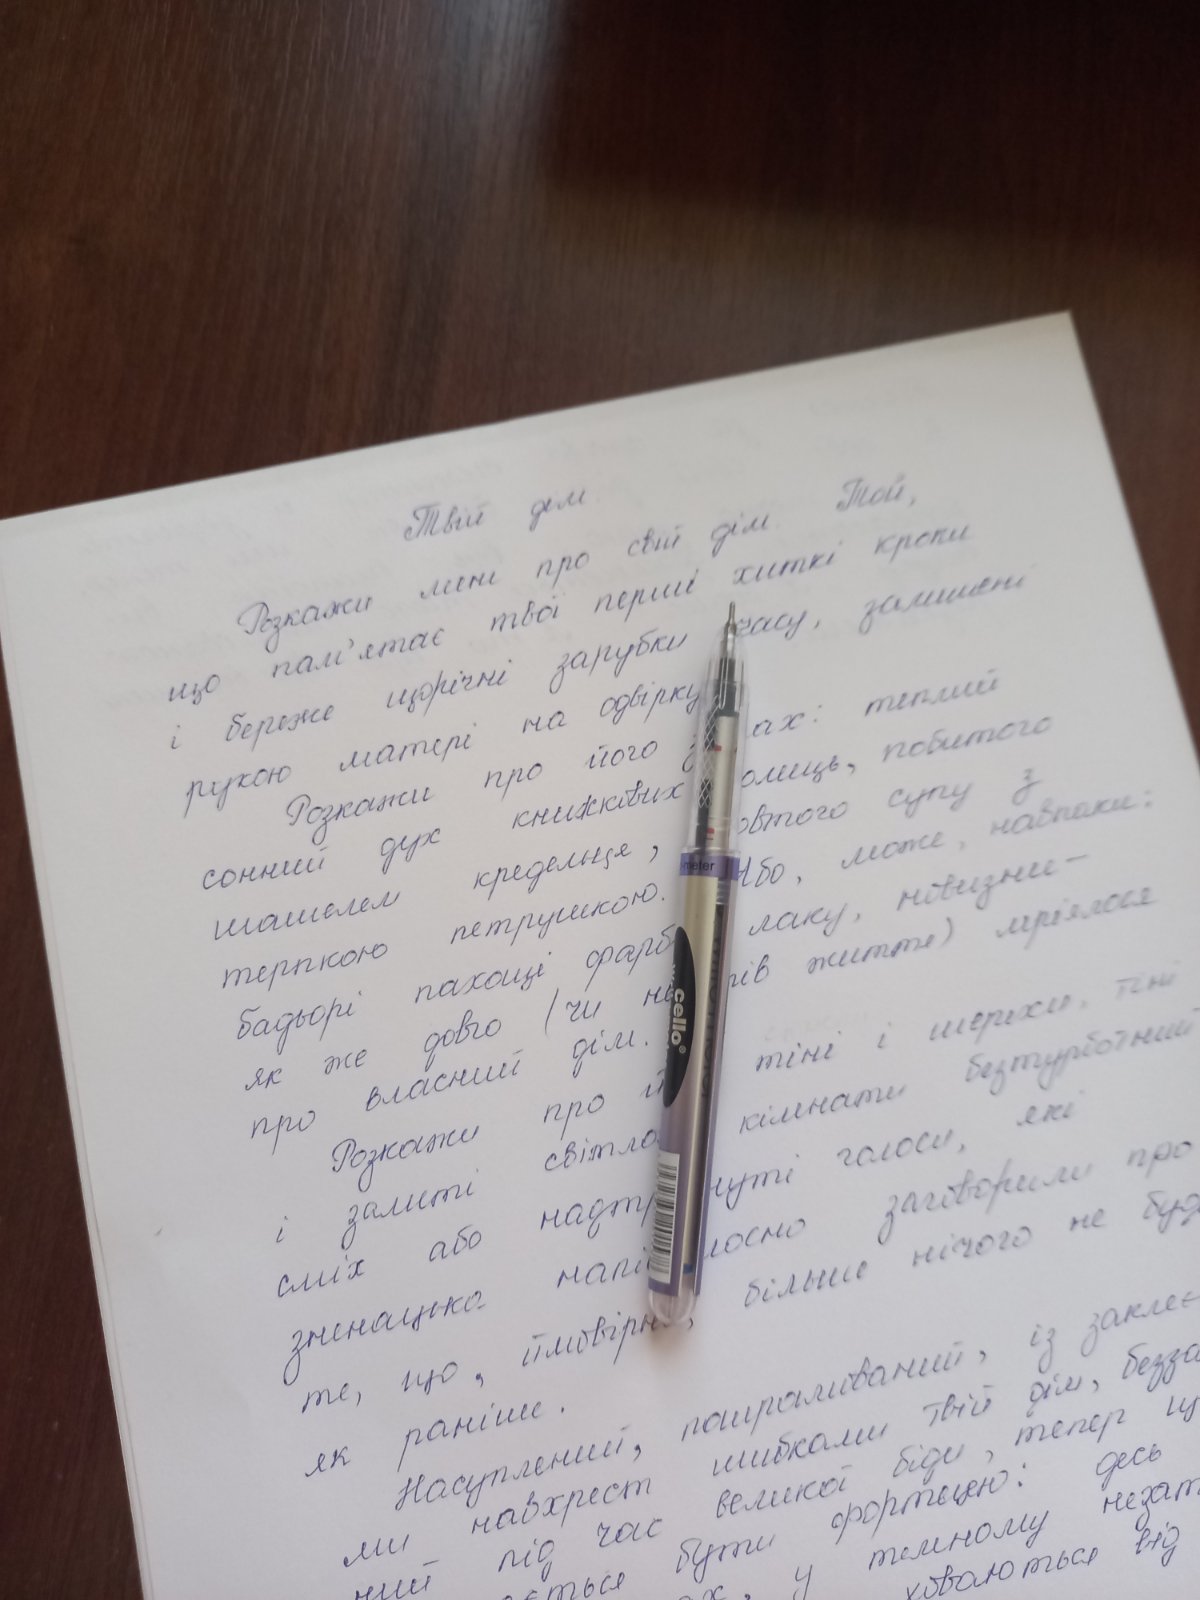 Твій дім.
Розкажи мені про свій дім. Той,
що пам'ятає твої перші хиткі кроки
і береже щорічні зарубки часу, залишені
рукою матері на одвірку
Розкажи про його з ах: теплий
сонний дух книжкових омиць, побитого
шашелем креденця, овтого супу з
терпкою петрушкою. Або, може, навпаки:
бадьорі пахощі фарб лаку, новизни –
як же довго (чи не ів життя) мріялося
про власний дім.
Розкажи про й тіні і шерехи. тіні
і залиті світло кімнати безтурботний
сміх або надтр нуті голоси, які
зненацька напі лосно заговорили про
те, що, ймовірно, більше нічого не буде
як раніше.
Насуплений, пошрамований, із заклеє
ми навхрест шибками твій дім, безза
ний під час великої біди, тепер
ється бути фортецею: десь
ах, у темному незат
ховаються від
cello
-meter